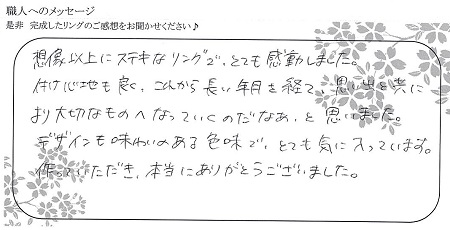 職人へのメッセージ
是非 完成したリングのご感想をお聞かせください♪
想像以上にステキなリングで、とても感動しました。
付け心地も良く、これから長い年月を経て、思い出と共に
より大切なものへなっていくのだなぁ、と思いました。
デザインも味わいのある色味で、とても気に入っています。
作っていただき、本当にありがとうございました。